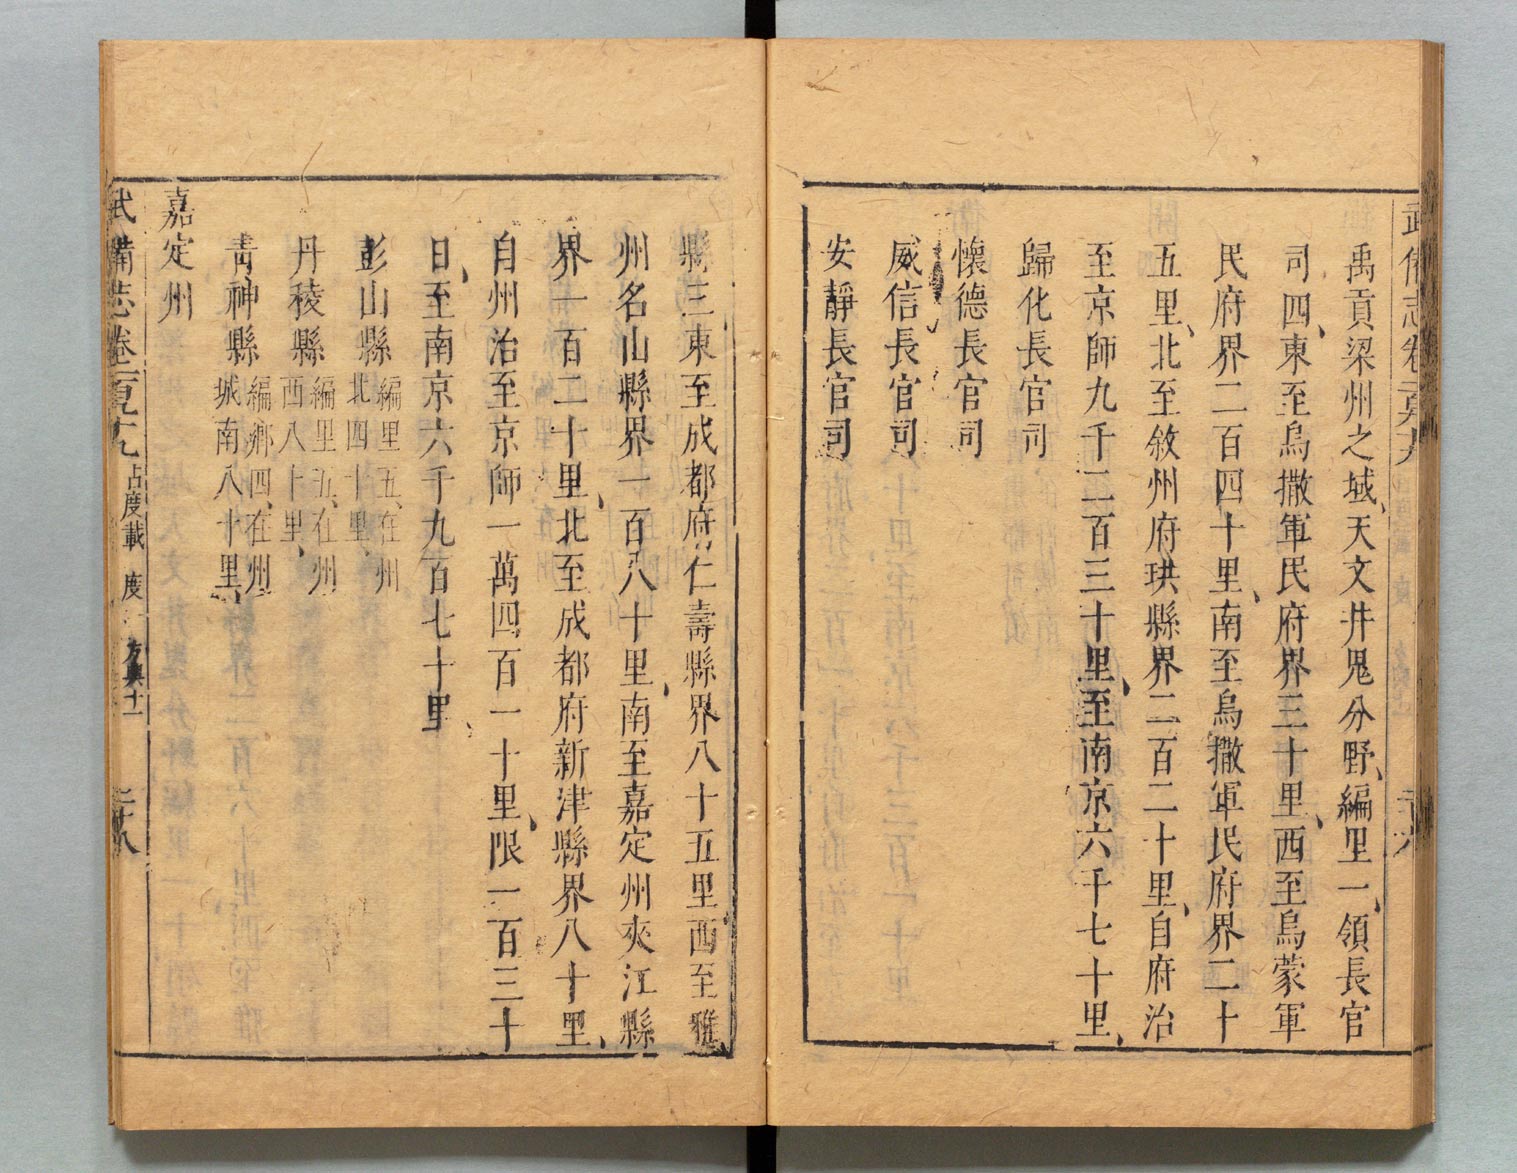 禹貢梁州之域、天文井鬼分野、編里一、領長官
司四、東至烏撒軍民府界三十里、西至烏蒙軍
民府界二百四十里、南至烏撒軍民府界二十
五里、北至敘州府珙縣界二百二十里、自府治
至京師九千二百三十里、至南京六千七十里、
歸化長官司
懷德長官司
威信長官司
安靜長官司
縣三、東至成都府仁壽縣界八十五里、西至雅
州名山縣界一百八十里、南至嘉定州夾江縣
界一百二十里、北至成都府新津縣界八十里、
自州治至京師一萬四百一十里、限一百三十
日、至南京六千九百七十里、
彭山縣 編里五、在州北四十里、
丹稜縣 編里五、在州西八十里、
青神縣 編鄉四、在州城南八十里、
嘉定州
武備志卷二百九 占度載 度 方輿十一 二十八